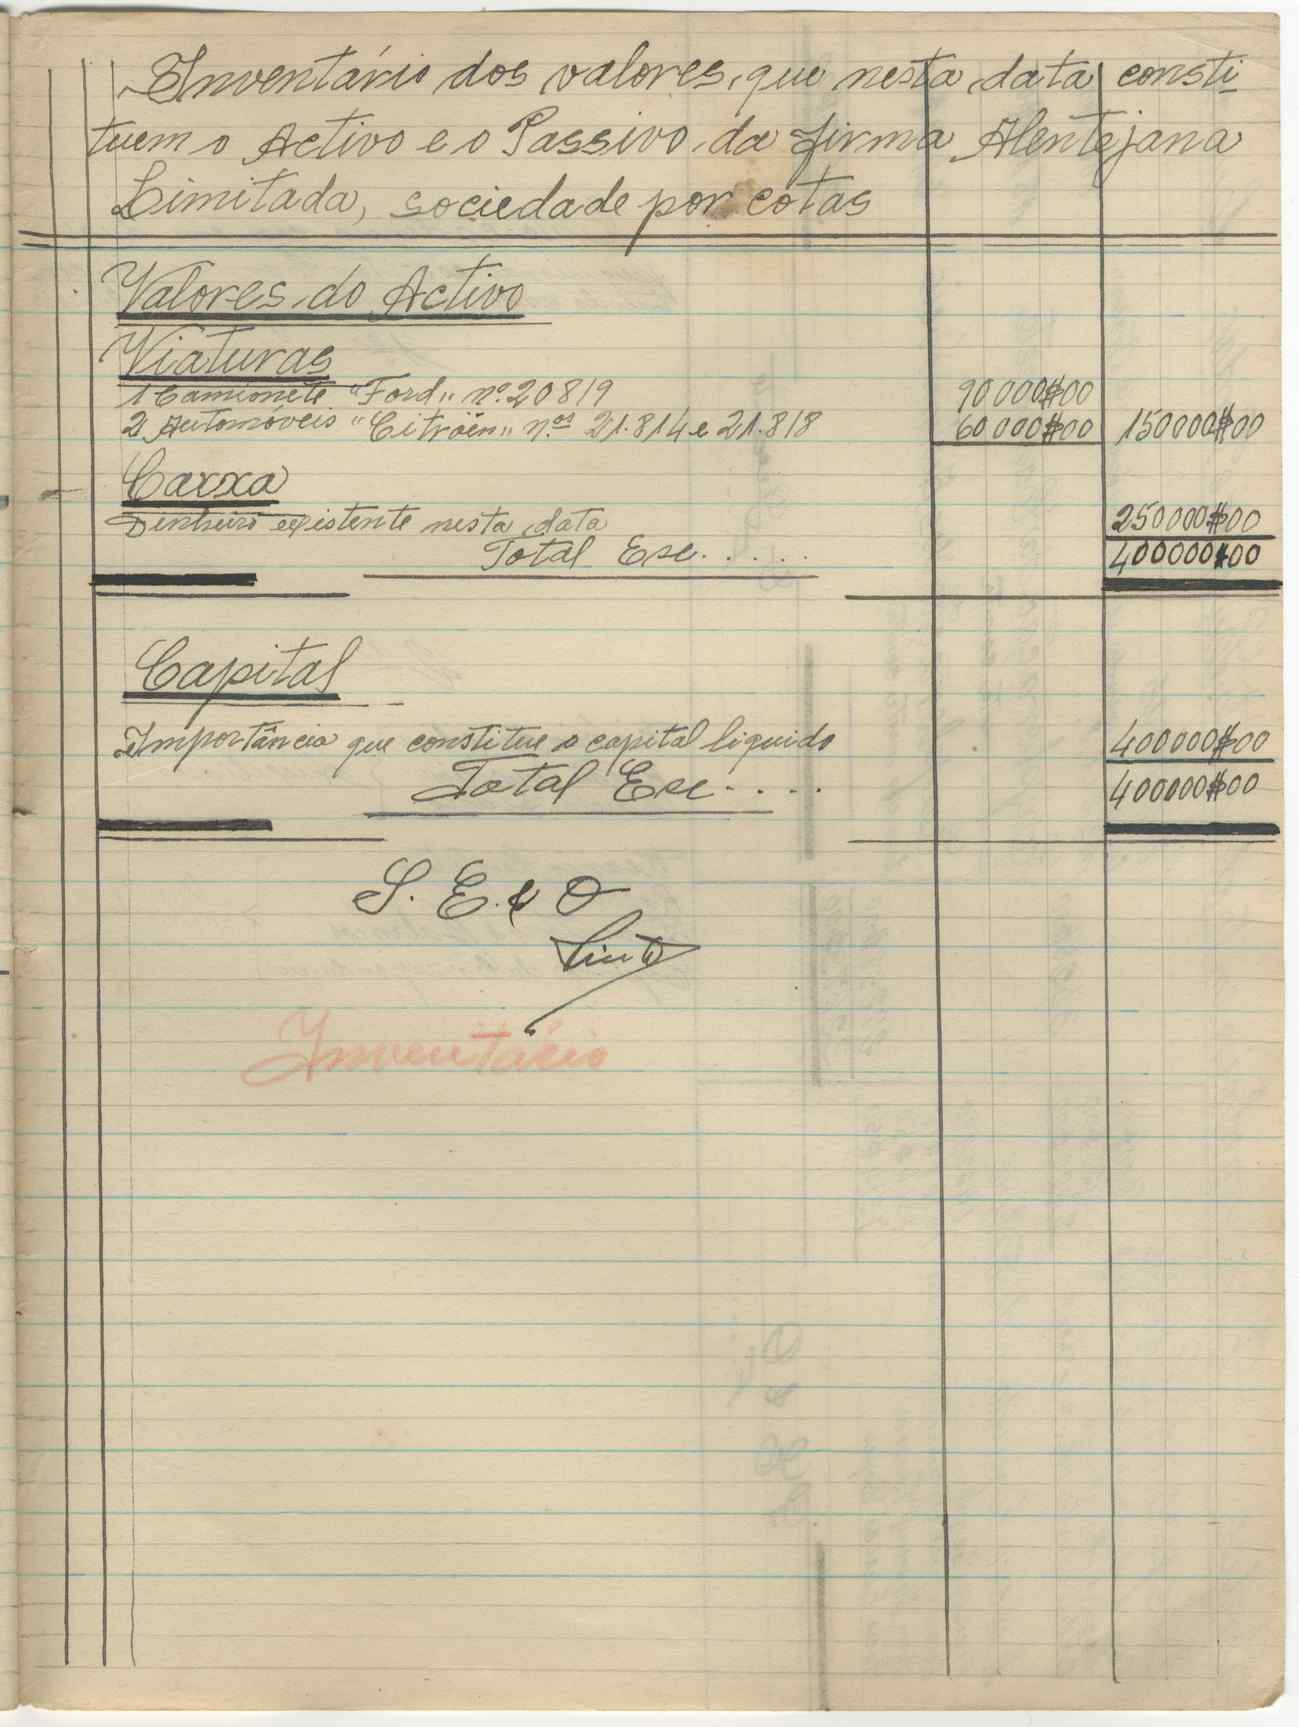 Inventário dos valores, que nesta data consti-
tuem o Activo e o Passivo da firma Alentejana
Limitada, sociedade por cotas
Valores do Activo
Viaturas
1 Camionete "Ford" nº. 20819 90000$00
2 Automóveis "Citröen" n.os 21.814 e 21.818 60000$00 150000$00
Caixa
Dinheiro existente nesta data 250000$00
Total Esc. . . . . 400000$00
Capital
Importância que constitue o capital liquido 400000$00
Total Esc. . . . 400000$00
S. E. e O
Inventário